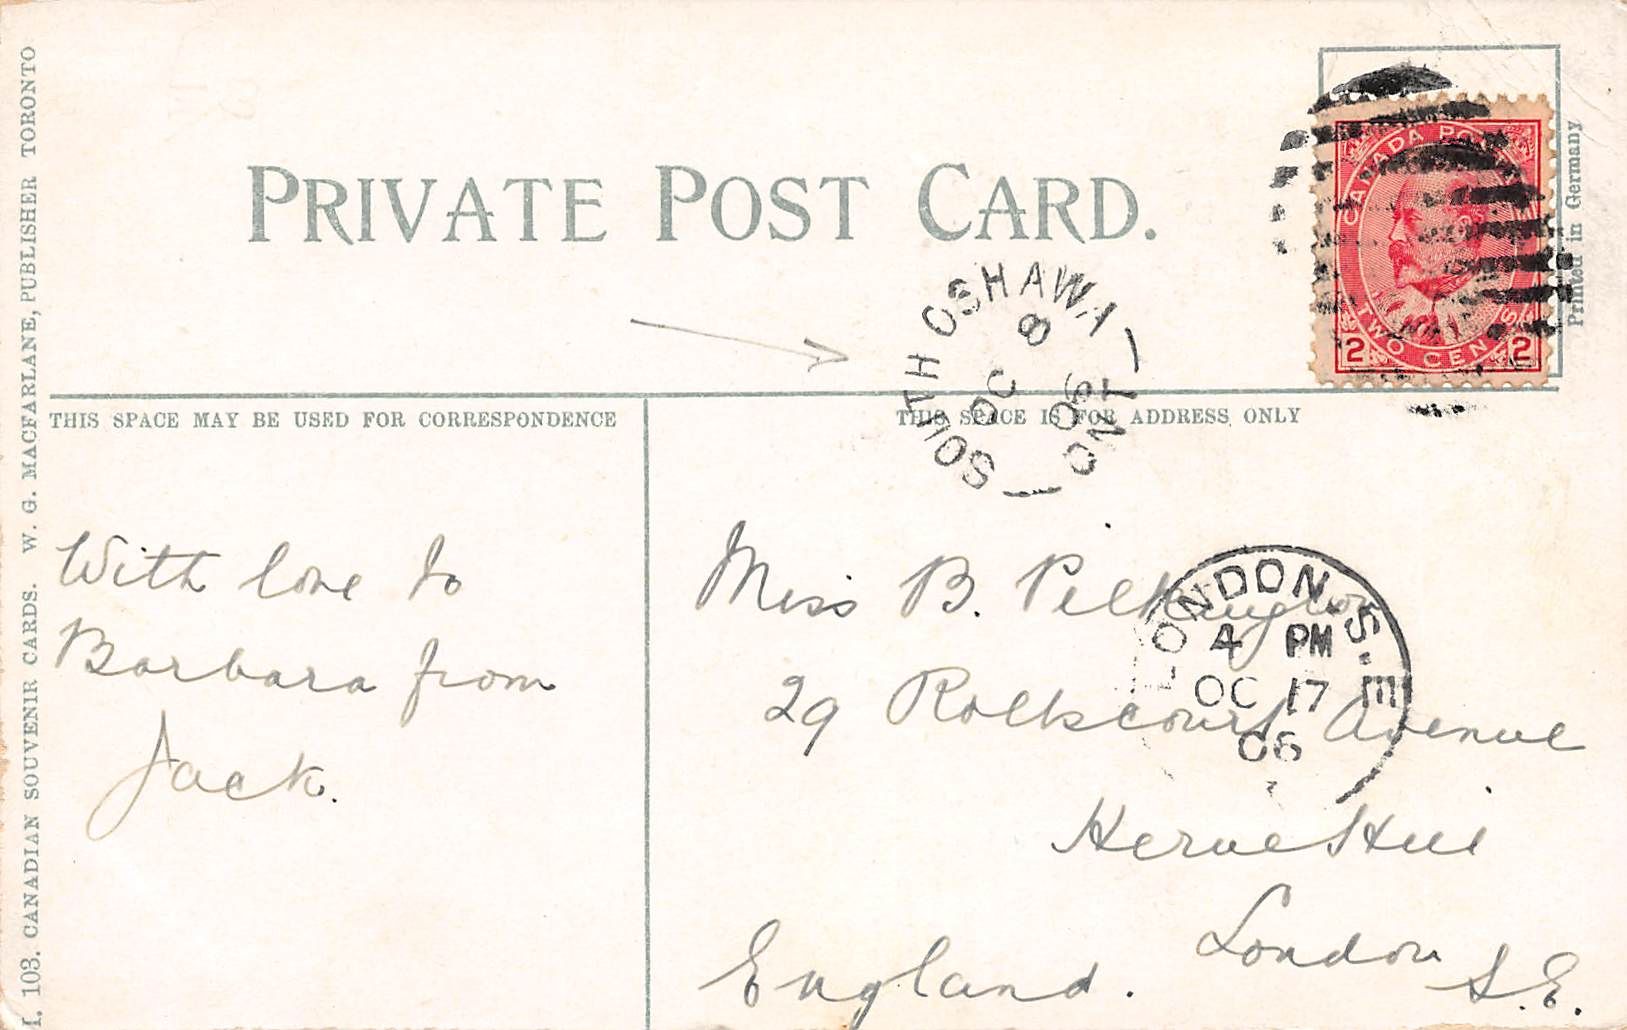 PRIVATE POST CARD.
CANADA POSTAGE
TWO CENTS
2 2
Printed in Germany
SOUTH OSHAWA
ONT
8
OC
06
THIS SPACE MAY BE USED FOR CORRESPONDENCE
THIS SPACE IS FOR ADDRESS ONLY
With love to
Barbara from
Jack.
Miss B. Pilkington
29 Avenue
Herne Hill
London
S.E.
England.
LONDON. S.E
4 PM
OC 17
06
103. CANADIAN SOUVENIR CARDS. W. G. MACFARLANE, PUBLISHER TORONTO